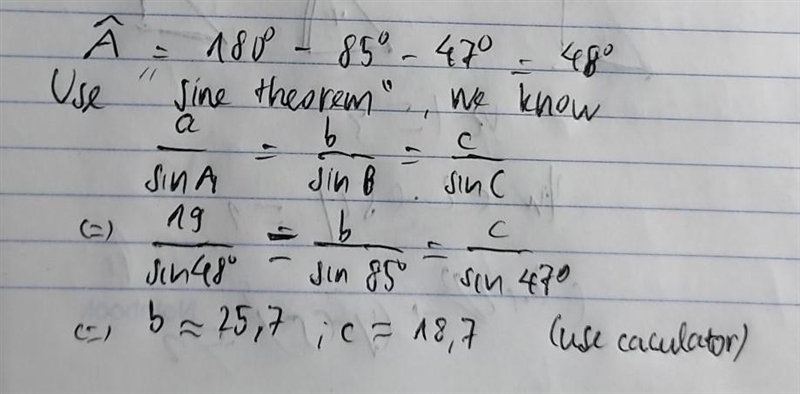 Â = 180° - 85° - 47° = 48°
Use "sine theorem", we know
a/sin A = b/sin B = c/sin C
(=) 19/sin 48° = b/sin 85° = c/sin 47°
(=) b ≈ 25,7 ; c = 18,7 (use caculator)